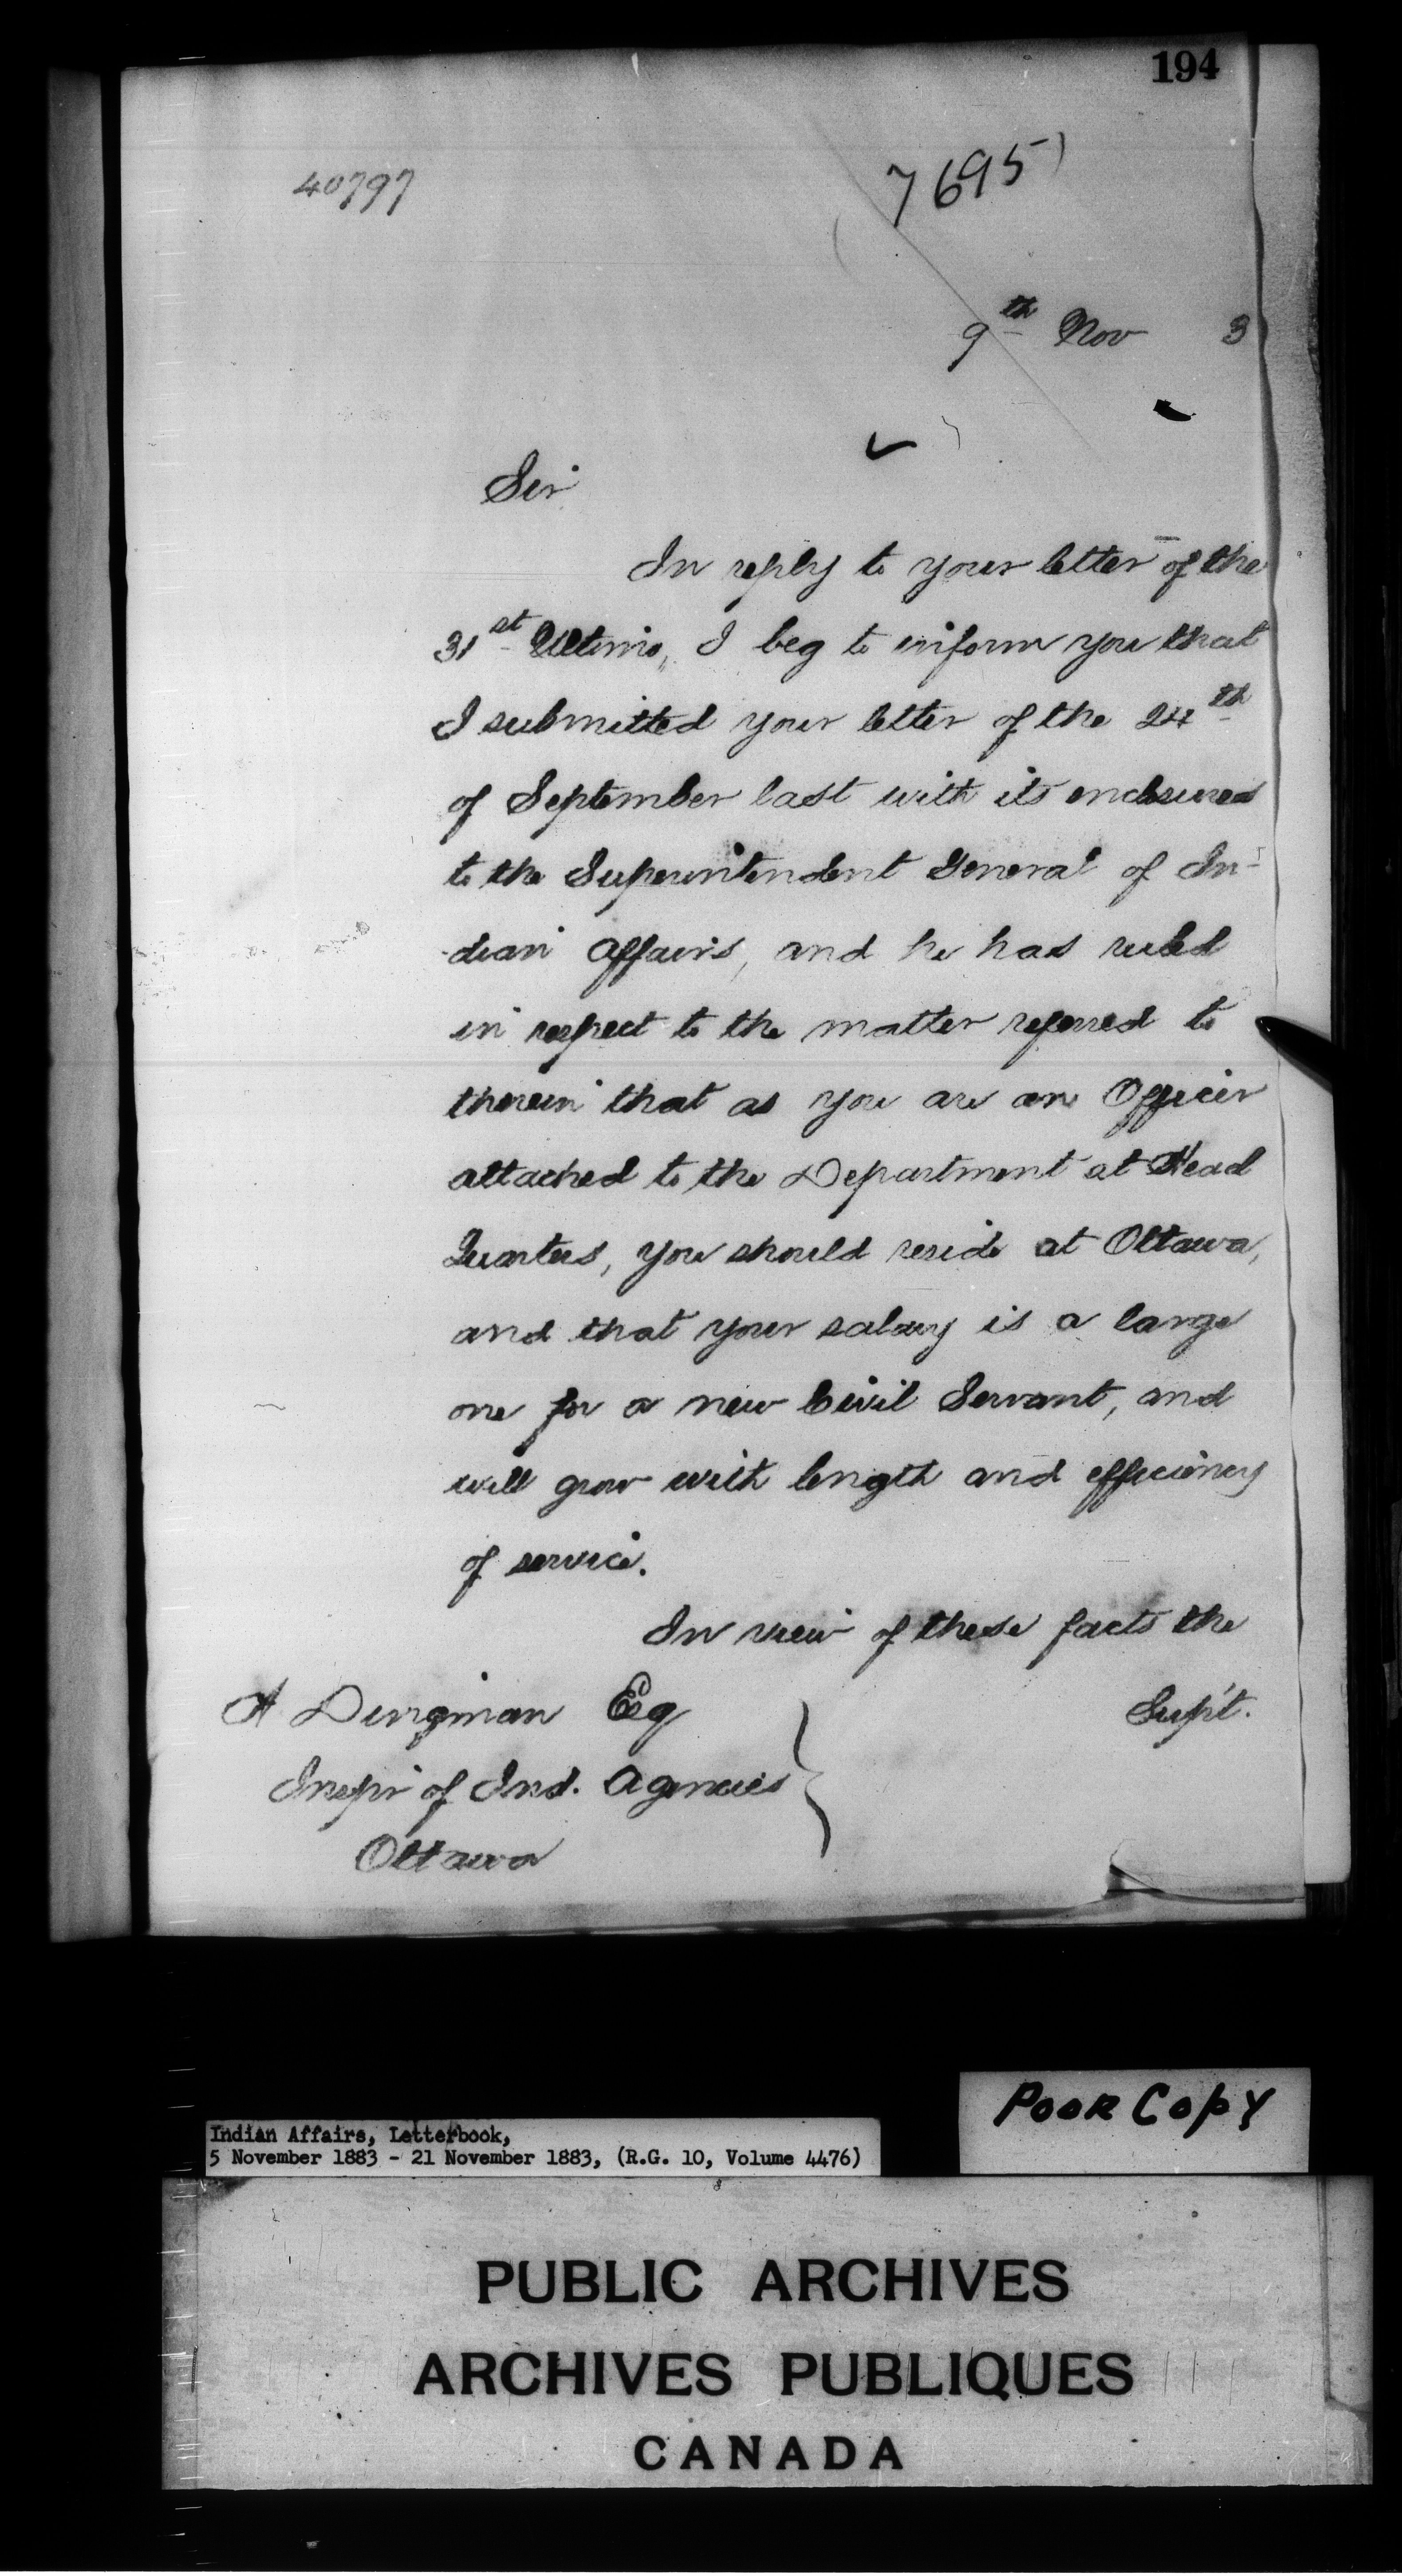 194
40797
7695
9th Nov 3
Sir
In reply to your letter of the
31st Ultimo, I beg to inform you that
I submitted your letter of the 24th
of September last with its enclosures
to the Superintendent General of In-
dian Affairs, and he has ruled
in respect to the matter referred to
therein that as you are an Officer
attached to the Department at Head
Quarters, you should reside at Ottawa,
and that your salary is a large
one for a new Civil Servant, and
will grow with length and efficiency
of service.
In view of these facts the
Supt.
A Dingman Eq
Inspr of Ind. Agencies
Ottawa
POOR COPY
Indian Affairs, Letterbook,
5 November 1883 - 21 November 1883, (R.G. 10, Volume 4476)
PUBLIC ARCHIVES
ARCHIVES PUBLIQUES
CANADA